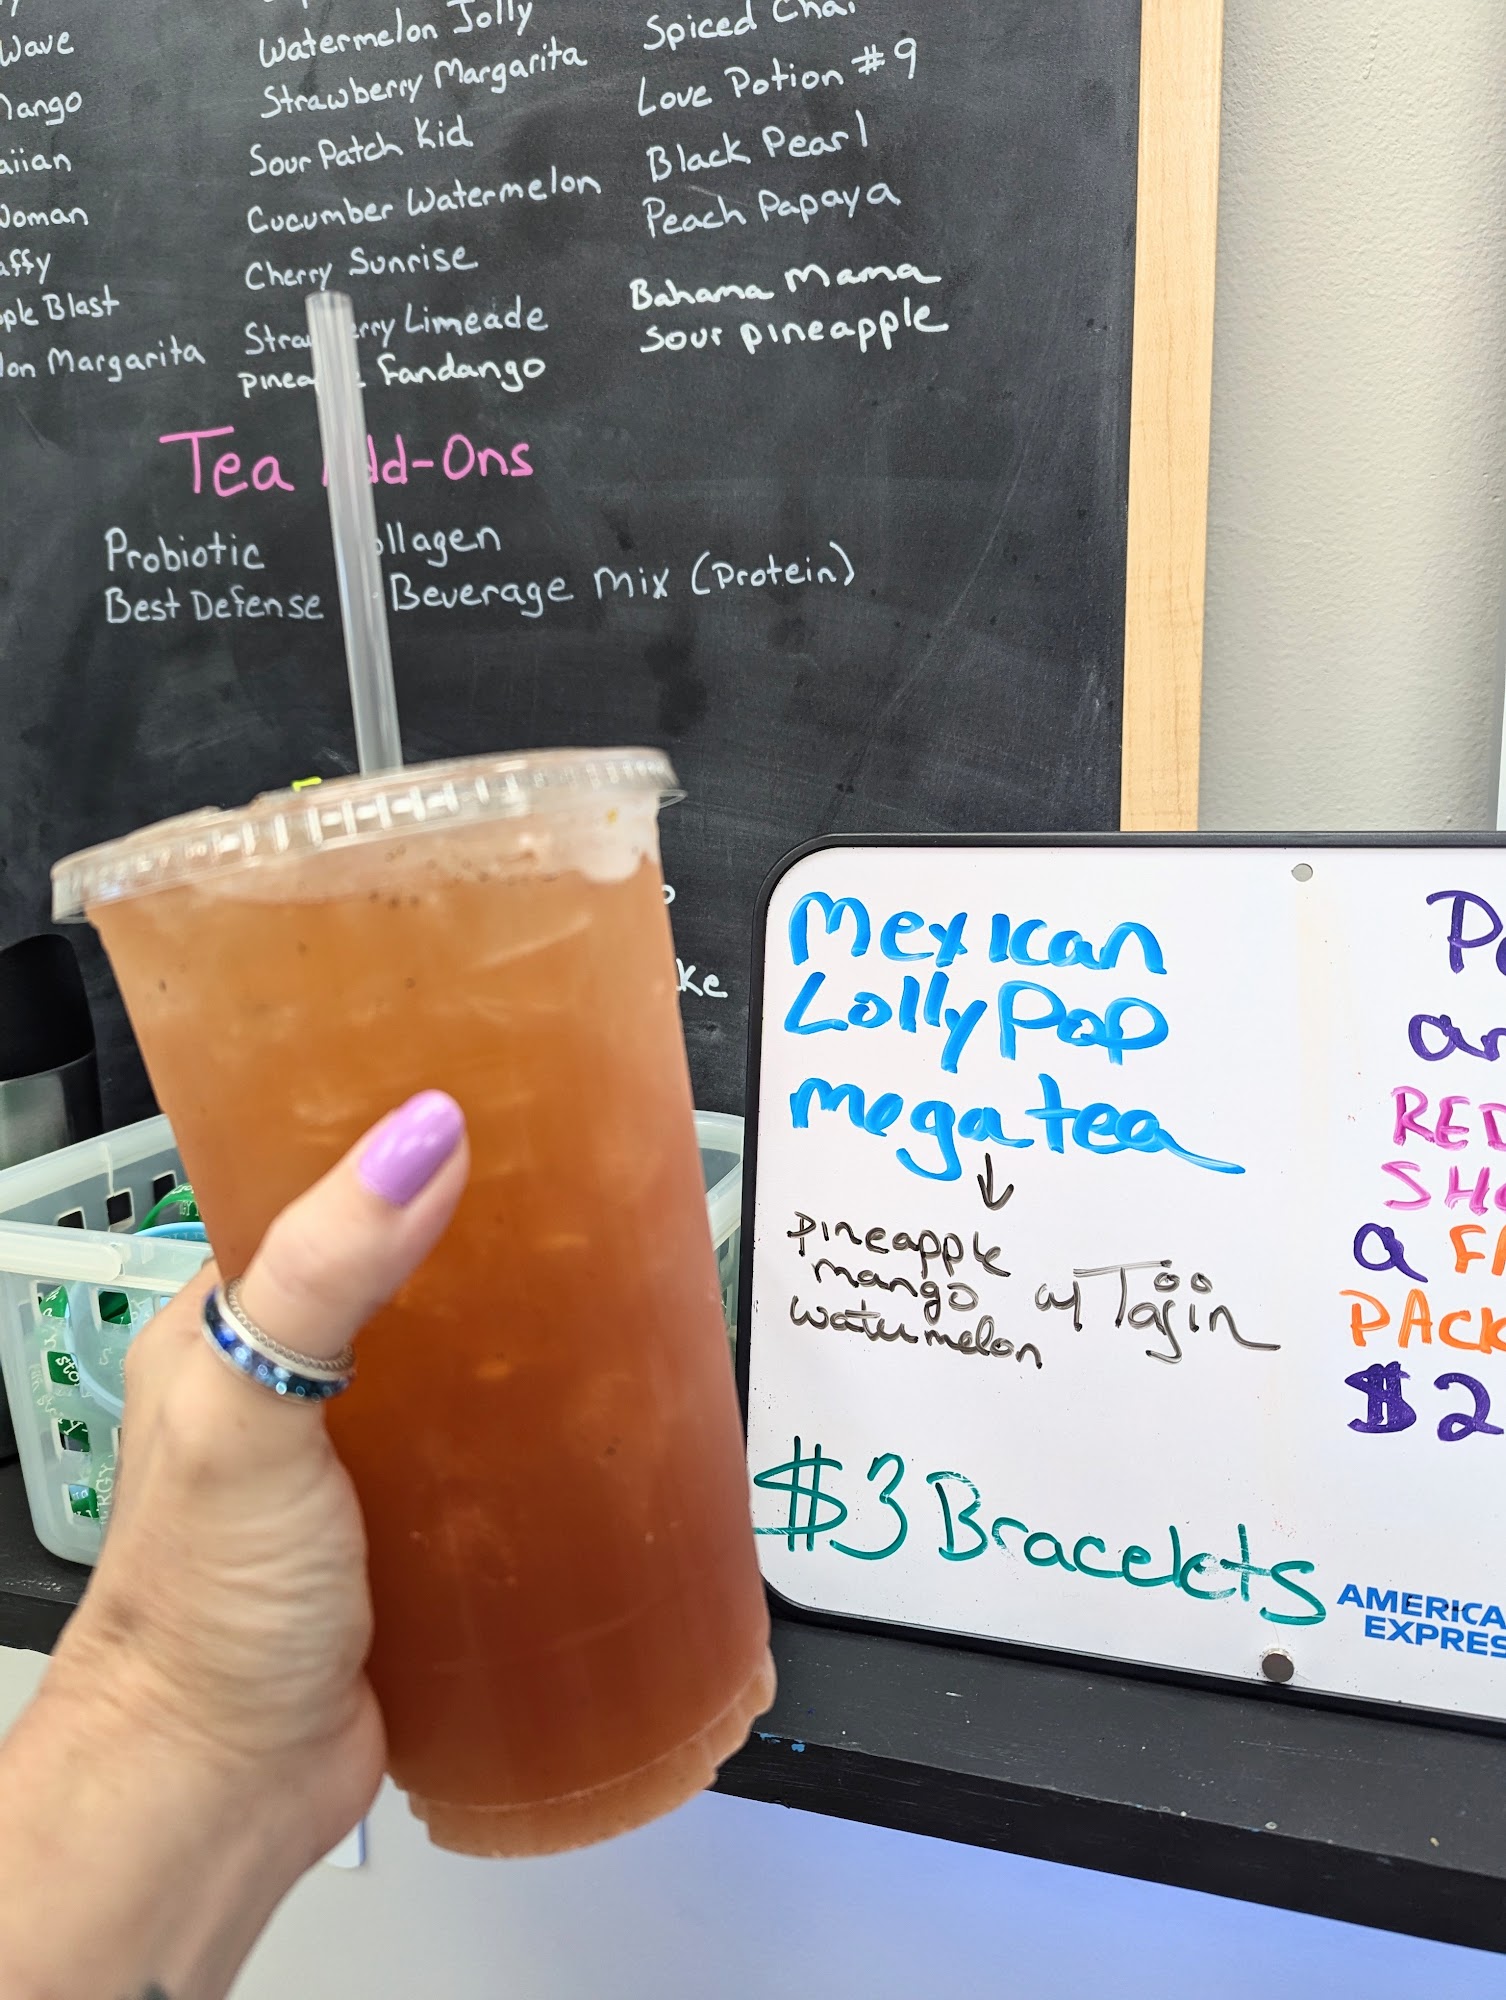 Wave
Mango
aiian
Woman
affy
ple Blast
lon Margarita
Watermelon Jolly
Strawberry Margarita
Sour Patch Kid
Cucumber Watermelon
Cherry Sunrise
Strawberry Limeade
pineapple Fandango
Spiced Chai
Love Potion #9
Black Pearl
Peach Papaya
Bahama Mama
Sour pineapple
Tea Add-Ons
Probiotic Collagen
Best Defense Beverage Mix (Protein)
ke
Mexican
LollyPop
mega tea
↓
pineapple
mango
watermelon
w/ Tajin
$3 Bracelets
ar
RED
SH
a FA
PACK
$2
AMERICA
EXPRES